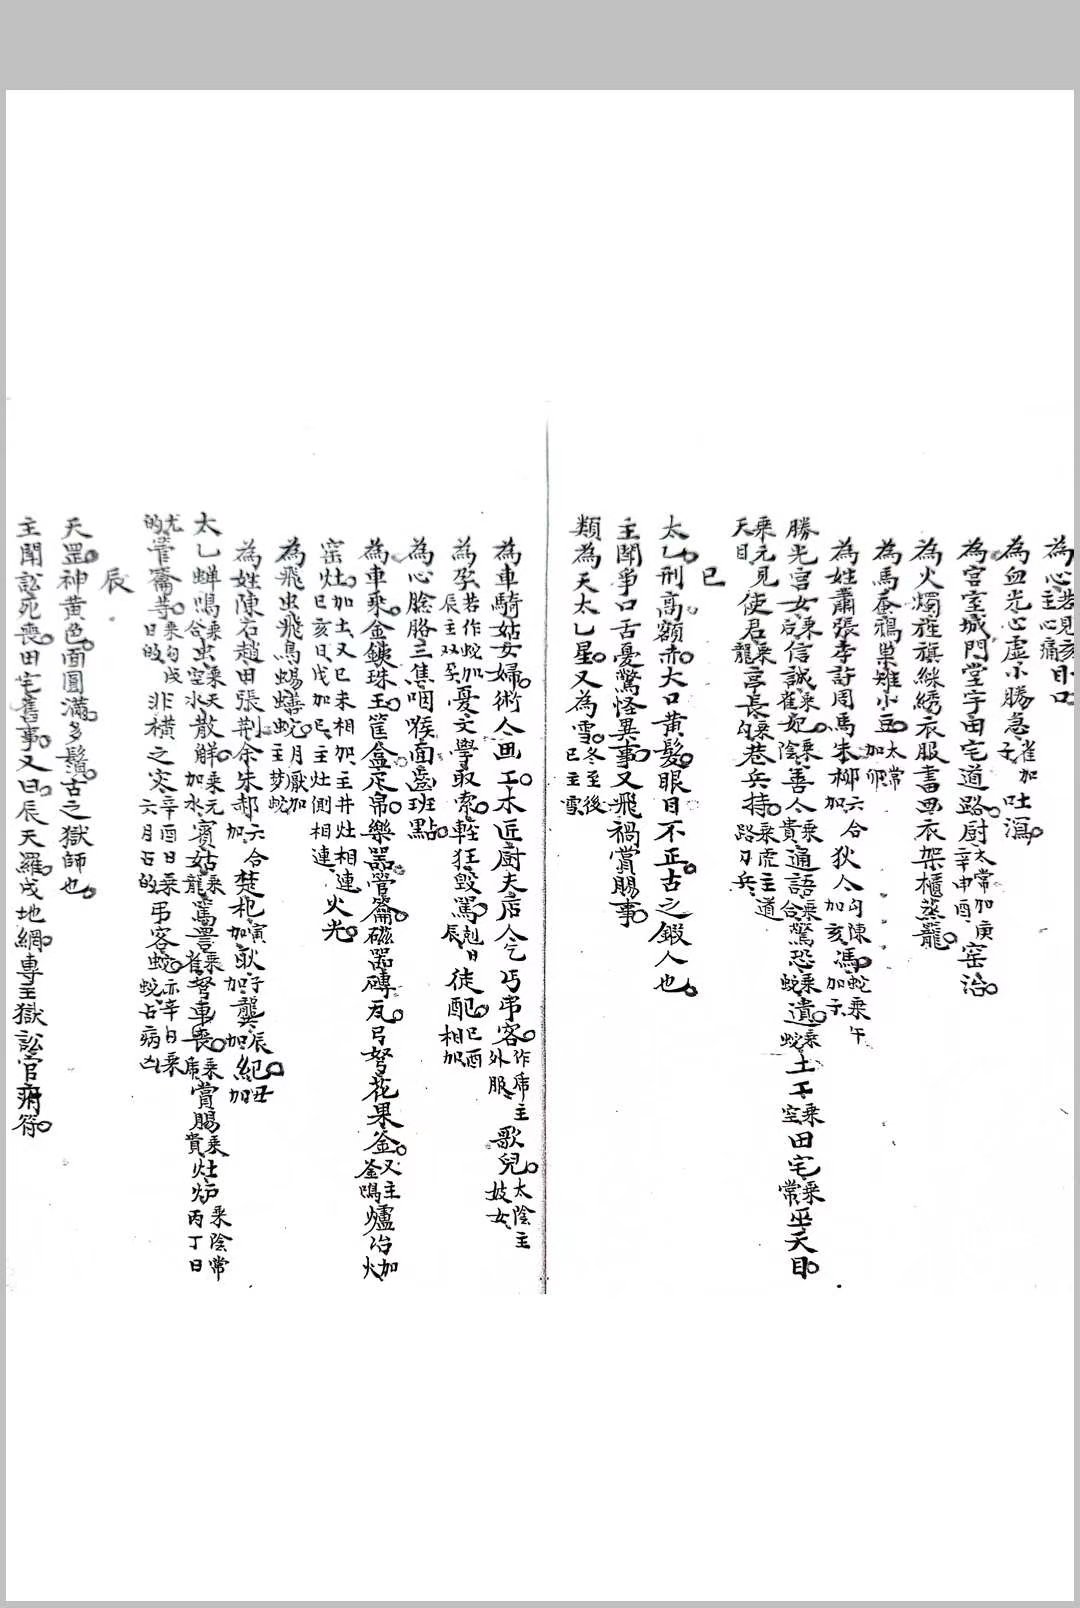 為心若見亥主心痛目口
為血光心虛小膓急雀加子吐瀉
為宮室城門堂宇田宅道路厨太常加庚辛申酉窑冶
為火燭旌旗綵綉衣服書畫衣架櫃蒸籠
為馬蚕鴉巢雉小豆太常加卯
為姓蕭張李許周馬朱柳六合加狄人勾陳加亥馮蛇乘午加
勝光宫女乘后信誠乘雀妃乘陰善人乘貴通語乘合驚恐乘蛇遺乘蛇土工乘空田宅乘常巫天目
乘元見天目使君乘龍亭長乘勾巷兵持乘虎主道路刀兵
巳
太乙刑高額赤大口黄髮眼目不正古之鍜人也
主閗爭口舌憂驚怪異事又飛禍賞賜事
類為天太乙星又為雪冬至後巳主雪
為車騎姑女婦術人画工木匠廚夫店人乞丐弔客作席主外服歌兒太陰主妓女
為孕若作蛇加辰主双癸憂文學取索輕狂毁罵尅日辰徒配巳酉相加
為心臉胳三焦咽喉面齒班點
為車乘金鉄珠玉筐盒疋帛樂器管籥磁器磚瓦弓弩花果釜又主釜鳴爐冶加火
窑灶加土又巳未相加主井灶相連巳亥日戊加巳主灶側相連火光
為飛虫飛鳥蜴蟮蛇月厭加主梦蛇
為姓陳石趙田張荆余朱郝六合加楚杞寅加耿子加龔辰加紀丑加
太乙蝉鳴乘合虫乘空水天散解乘元加水賓姑乘龍罵詈乘雀弩車喪乘席賞賜乘常貴灶炉乘陰常丙丁日
尤的管籥等乘勾戌日的非横之灾辛酉日乘六月占的弔客蛇亦辛日乘蛇占病凶
辰
天罡神黄色面圓滿多鬚古之獄師也
主閗訟死喪田宅舊事又曰辰天羅戌地網專主獄訟官府符